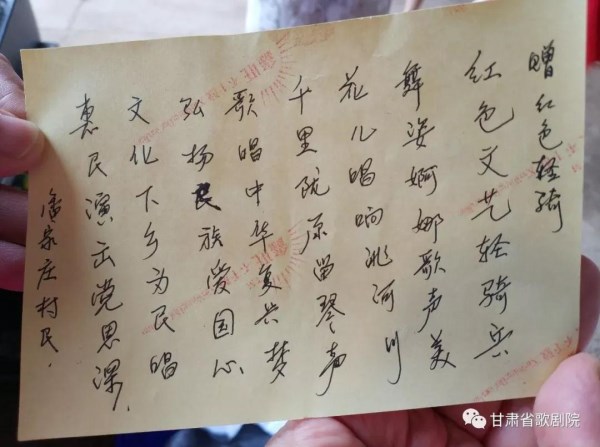 赠红色轻骑
红色文艺轻骑兵
舞姿婀娜歌声美
花儿唱响洮河川
千里陇原留琴声
歌唱中华复兴梦
弘扬民族爱国心
文化下乡为民唱
惠民演出党恩深.
潘家庄村民.
甘肃省歌剧院